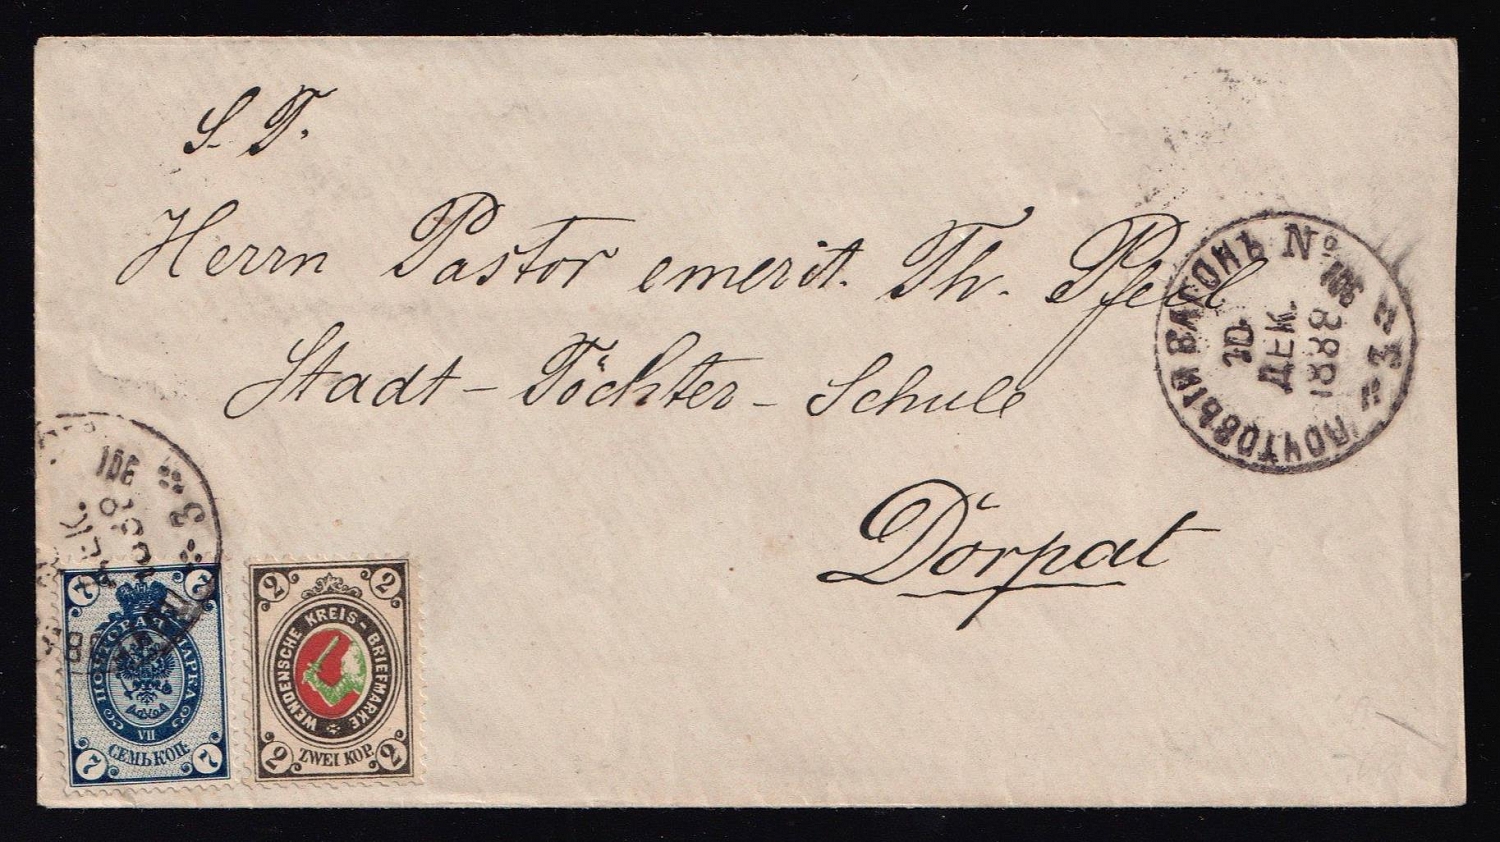 S. T.
Herrn Pastor emerit. Th. Pfeil
Stadt - Töchter - Schule
Dorpat
ПОЧТОВЫЙ ВАГОНЪ № 106
10
ДЕК.
1888
3
106
ДЕК.
1888
3
7 7
ПОЧТОВАЯ МАРКА
VII
СЕМЬ КОП.
7 7
2 2
WENDENSCHE KREIS-BRIEFMARKE
ZWEI KOP.
2 2